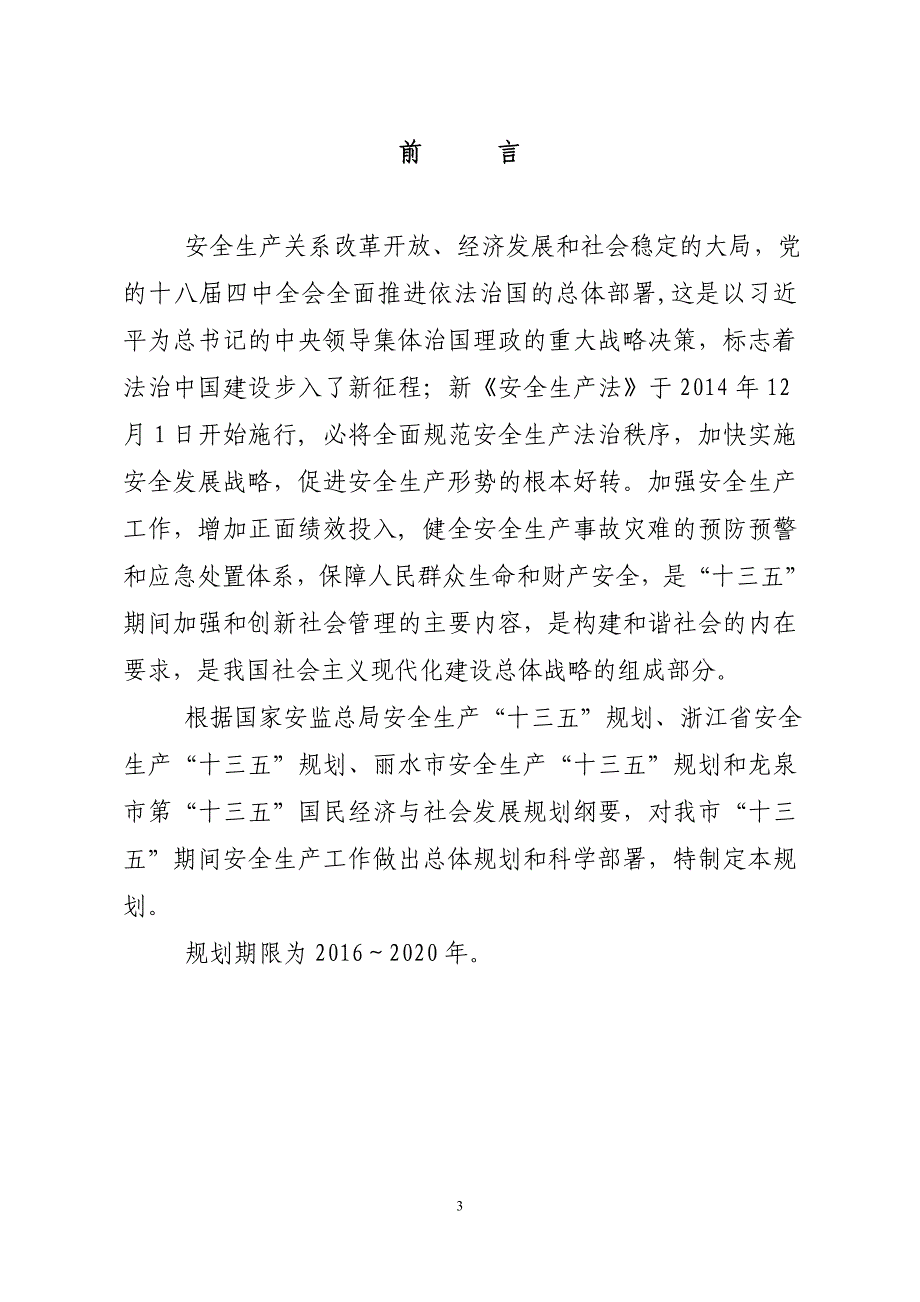 前 言
安全生产关系改革开放、经济发展和社会稳定的大局，党
的十八届四中全会全面推进依法治国的总体部署,这是以习近
平为总书记的中央领导集体治国理政的重大战略决策，标志着
法治中国建设步入了新征程；新《安全生产法》于 2014 年 12
月 1 日开始施行, 必将全面规范安全生产法治秩序，加快实施
安全发展战略，促进安全生产形势的根本好转。加强安全生产
工作，增加正面绩效投入, 健全安全生产事故灾难的预防预警
和应急处置体系，保障人民群众生命和财产安全，是“十三五”
期间加强和创新社会管理的主要内容，是构建和谐社会的内在
要求，是我国社会主义现代化建设总体战略的组成部分。
根据国家安监总局安全生产“十三五”规划、浙江省安全
生产“十三五”规划、丽水市安全生产“十三五”规划和龙泉
市第“十三五”国民经济与社会发展规划纲要，对我市“十三
五”期间安全生产工作做出总体规划和科学部署，特制定本规
划。
规划期限为 2016～2020 年。
3